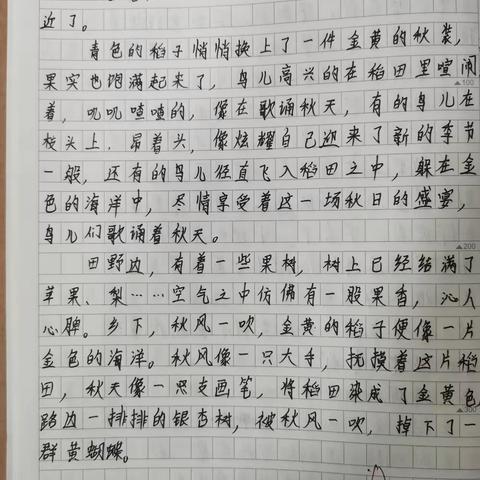 近了。
青色的稻子悄悄换上了一件金黄的秋装,
果实也饱满起来了,鸟儿高兴的在稻田里喧闹
着,叽叽喳喳的,像在歌诵秋天,有的鸟儿在
枝头上,昂着头,像炫耀自己迎来了新的季节
一般,还有的鸟儿径直飞入稻田之中,躲在金
色的海洋中,尽情享受着这一场秋日的盛宴,
鸟儿们歌诵着秋天。
田野边,有着一些果树,树上已经结满了
苹果、梨……空气之中仿佛有一股果香,沁人
心脾。乡下,秋风一吹,金黄的稻子便像一片
金色的海洋。秋风像一只大手,抚摸着这片稻
田,秋天像一只支画笔,将稻田染成了金黄色
路边一排排的银杏树,被秋风一吹,掉下了一
群黄蝴蝶。
100
200
300